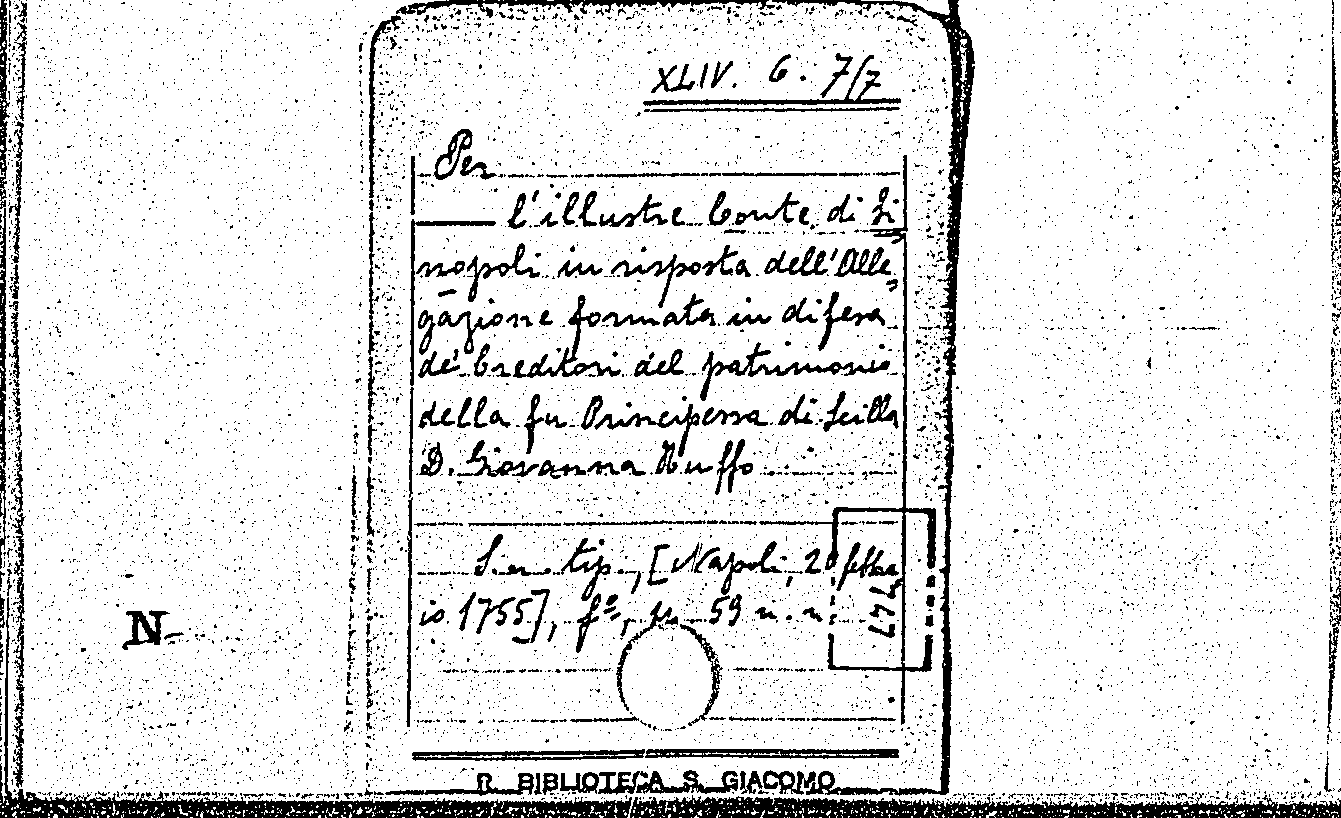 XLIV. 6. 7/7
Per
l'illustre Conte di Si
nopoli in risposta dell'Alle
gazione formata in difesa
de' Creditori del patrimonio
della fu Principessa di Scilla
D. Giovanna Ruffo
S. n. tip., [Napoli, 20 febbra
io 1755], fº, p. 59 n. n.
N
R. BIBLIOTECA S. GIACOMO